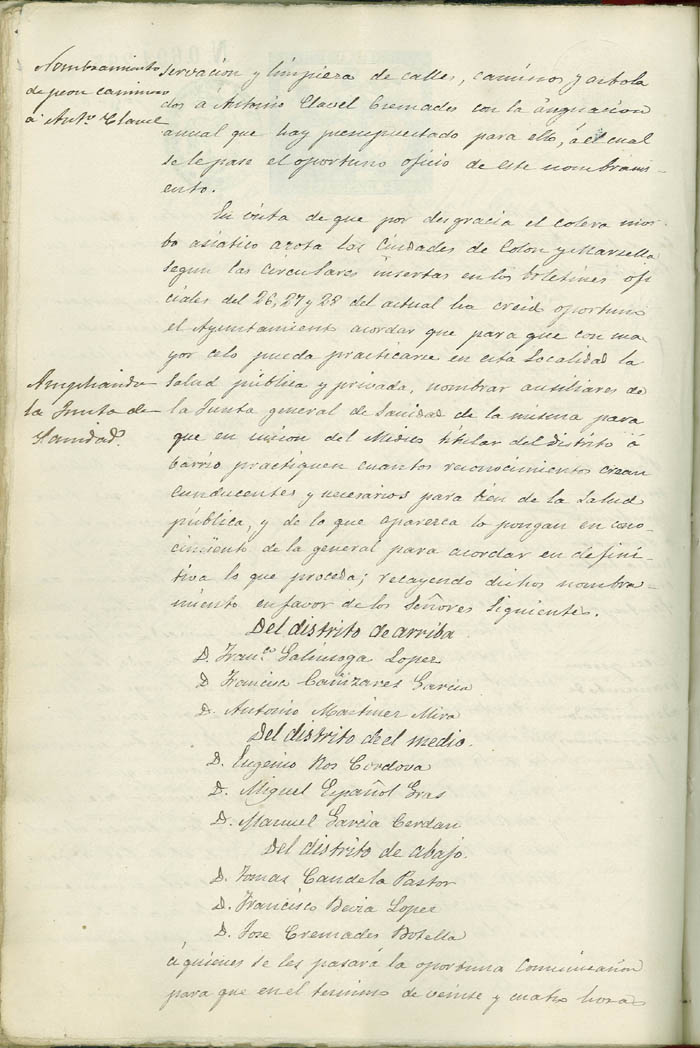 Nombramiento
de peon caminero
a Anto. Clavel
servacion y limpieza de calles, caminos y arbola
dos á Antonio Clavel Cremades con la asignacion
anual que hay presupuestado para ello, á el cual
se le pase el oportuno oficio de este nombrami-
ento.
En vista de que por desgracia el colera mor-
bo asiático azota las Ciudades de Tolon y Marsella
segun las circulares insertas en los boletines ofi
ciales del 26, 27 y 28 del actual ha creido oportuno
el Ayuntamiento acordar que para que con ma-
yor celo pueda practicarse en esta localidad la
Ampliando
la Junta de
Sanidad.
salud pública y privada, nombrar auxiliares de
la Junta general de Sanidad de la misma para
que en union del Medico titular del distrito ó
barrio practiquen cuantos reconocimientos crean
conducentes y necesarios para bien de la salud
pública, y de lo que aparezca lo pongan en cono-
cimiento de la general para acordar en defini-
tiva lo que proceda; recayendo dichos nombra-
miento en favor de los Señores siguientes.
Del distrito de arriba
D. Franco. Galinsoga Lopez
D. Francisco Cañizares Garcia
D. Antonio Martinez Mira
Del distrito de el medio.
D. Eugenio Ros Cordova
D. Miguel Español Gras
D. Manuel Garcia Cerdan
Del distrito de abajo.
D. Tomas Candela Pastor
D. Francisco Devia Lopez
D. Jose Cremades Botella
á quienes se les pasará la oportuna comunicacion
para que en el termino de veinte y cuatro horas